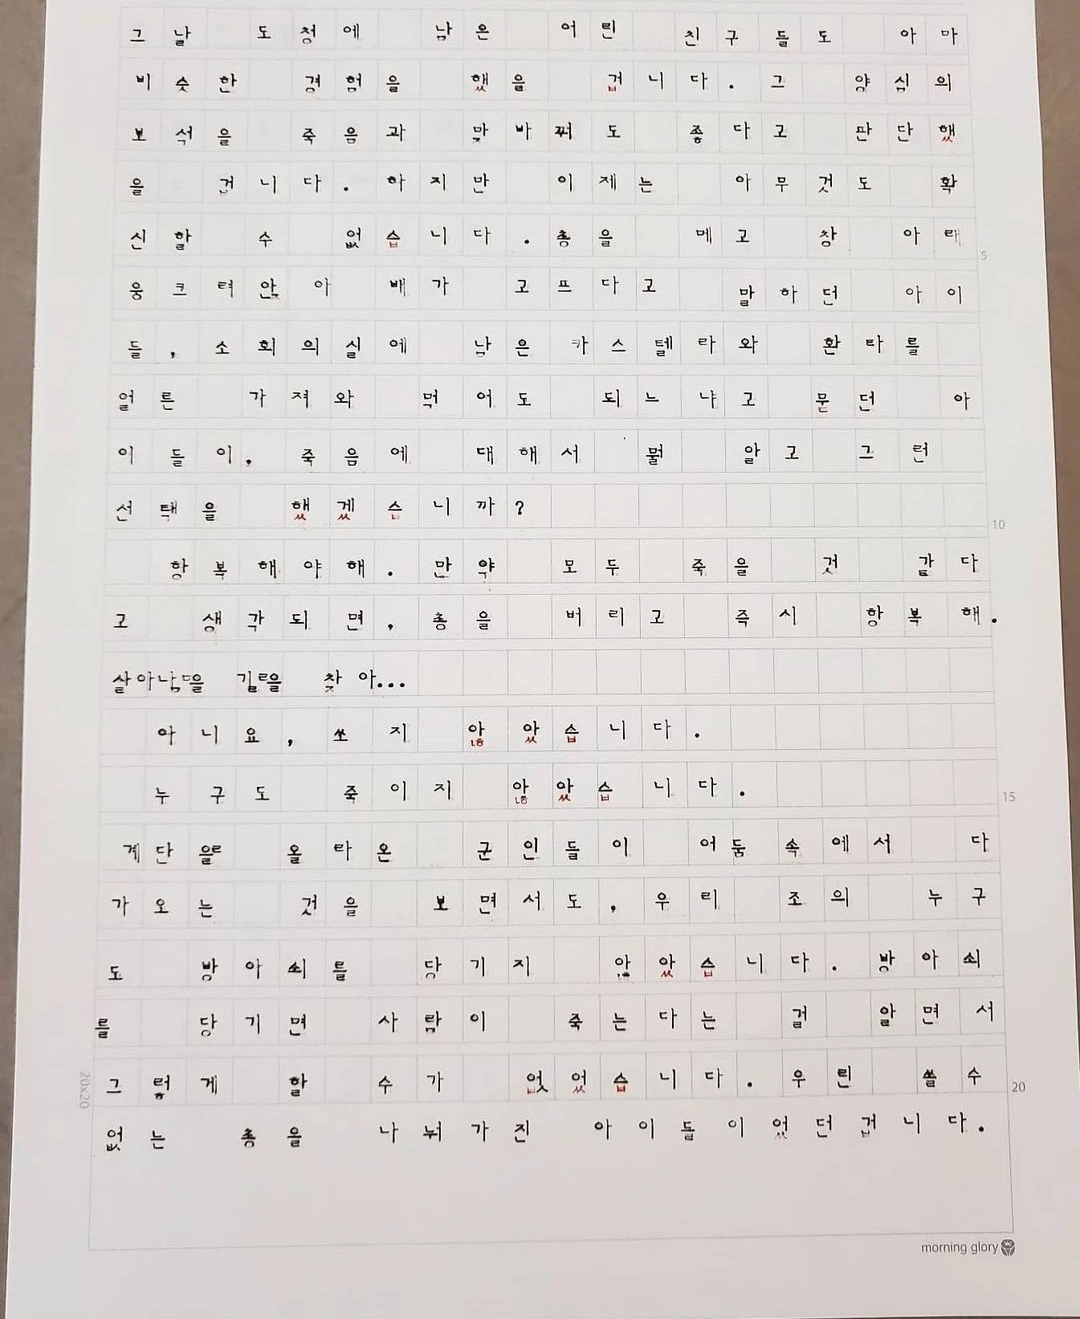 그날 도청에 남은 어린 친구들도 아마
비슷한 경험을 했을 겁니다. 그 양심의
보석을 죽음과 맞바꿔도 좋다고 판단했
을 겁니다. 하지만 이제는 아무것도 확
신할 수 없습니다. 총을 메고 창 아래
5
웅크려앉아 배가 고프다고 말하던 아이
들, 소회의실에 남은 카스텔라와 환타를
얼른 가져와 먹어도 되느냐고 묻던 아
이들이, 죽음에 대해서 뭘 알고 그런
선택을 했겠습니까?
10
항복해야해. 만약 모두 죽을 것 같다
고 생각되면, 총을 버리고 즉시 항복해.
살아남을 길을 찾아...
아니요, 쏘지 않았습니다.
누구도 죽이지 않았습니다.
15
계단을 올라온 군인들이 어둠속에서 다
가오는 것을 보면서도, 우리 조의 누구
도 방아쇠를 당기지 않았습니다. 방아쇠
를 당기면 사람이 죽는다는 걸 알면서
그렇게 할 수가 없었습니다. 우린 쏠수
20
20x20
없는 총을 나눠가진 아이들이었던겁니다.
morning glory